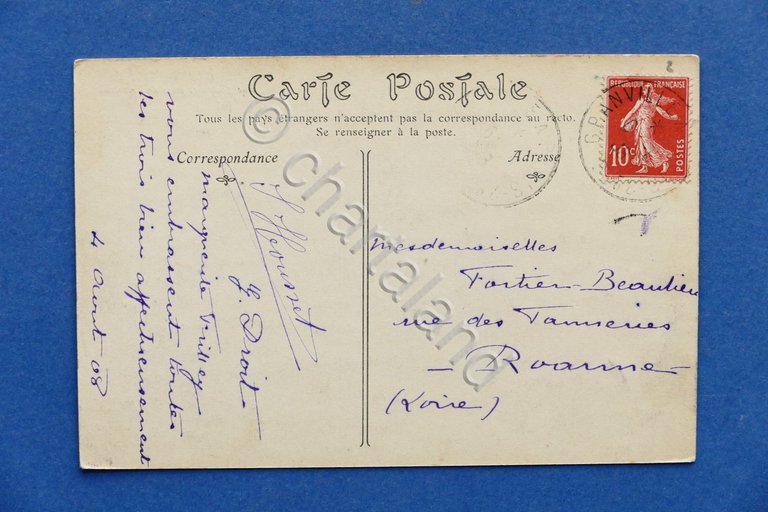 Carte Postale
Tous les pays étrangers n'acceptent pas la correspondance au recto.
Se renseigner à la poste.
Correspondance
Adresse
REPUBLIQUE FRANÇAISE
10c
POSTES
GRANVILLE
Mesdemoiselles
Fortier-Beaulieu
rue des Tanneries
- Roanne -
(Loire)
J. Droit
Marguerite
vous embrassent toutes
les trois bien affectueusement
4 Aout 08
© chartaland